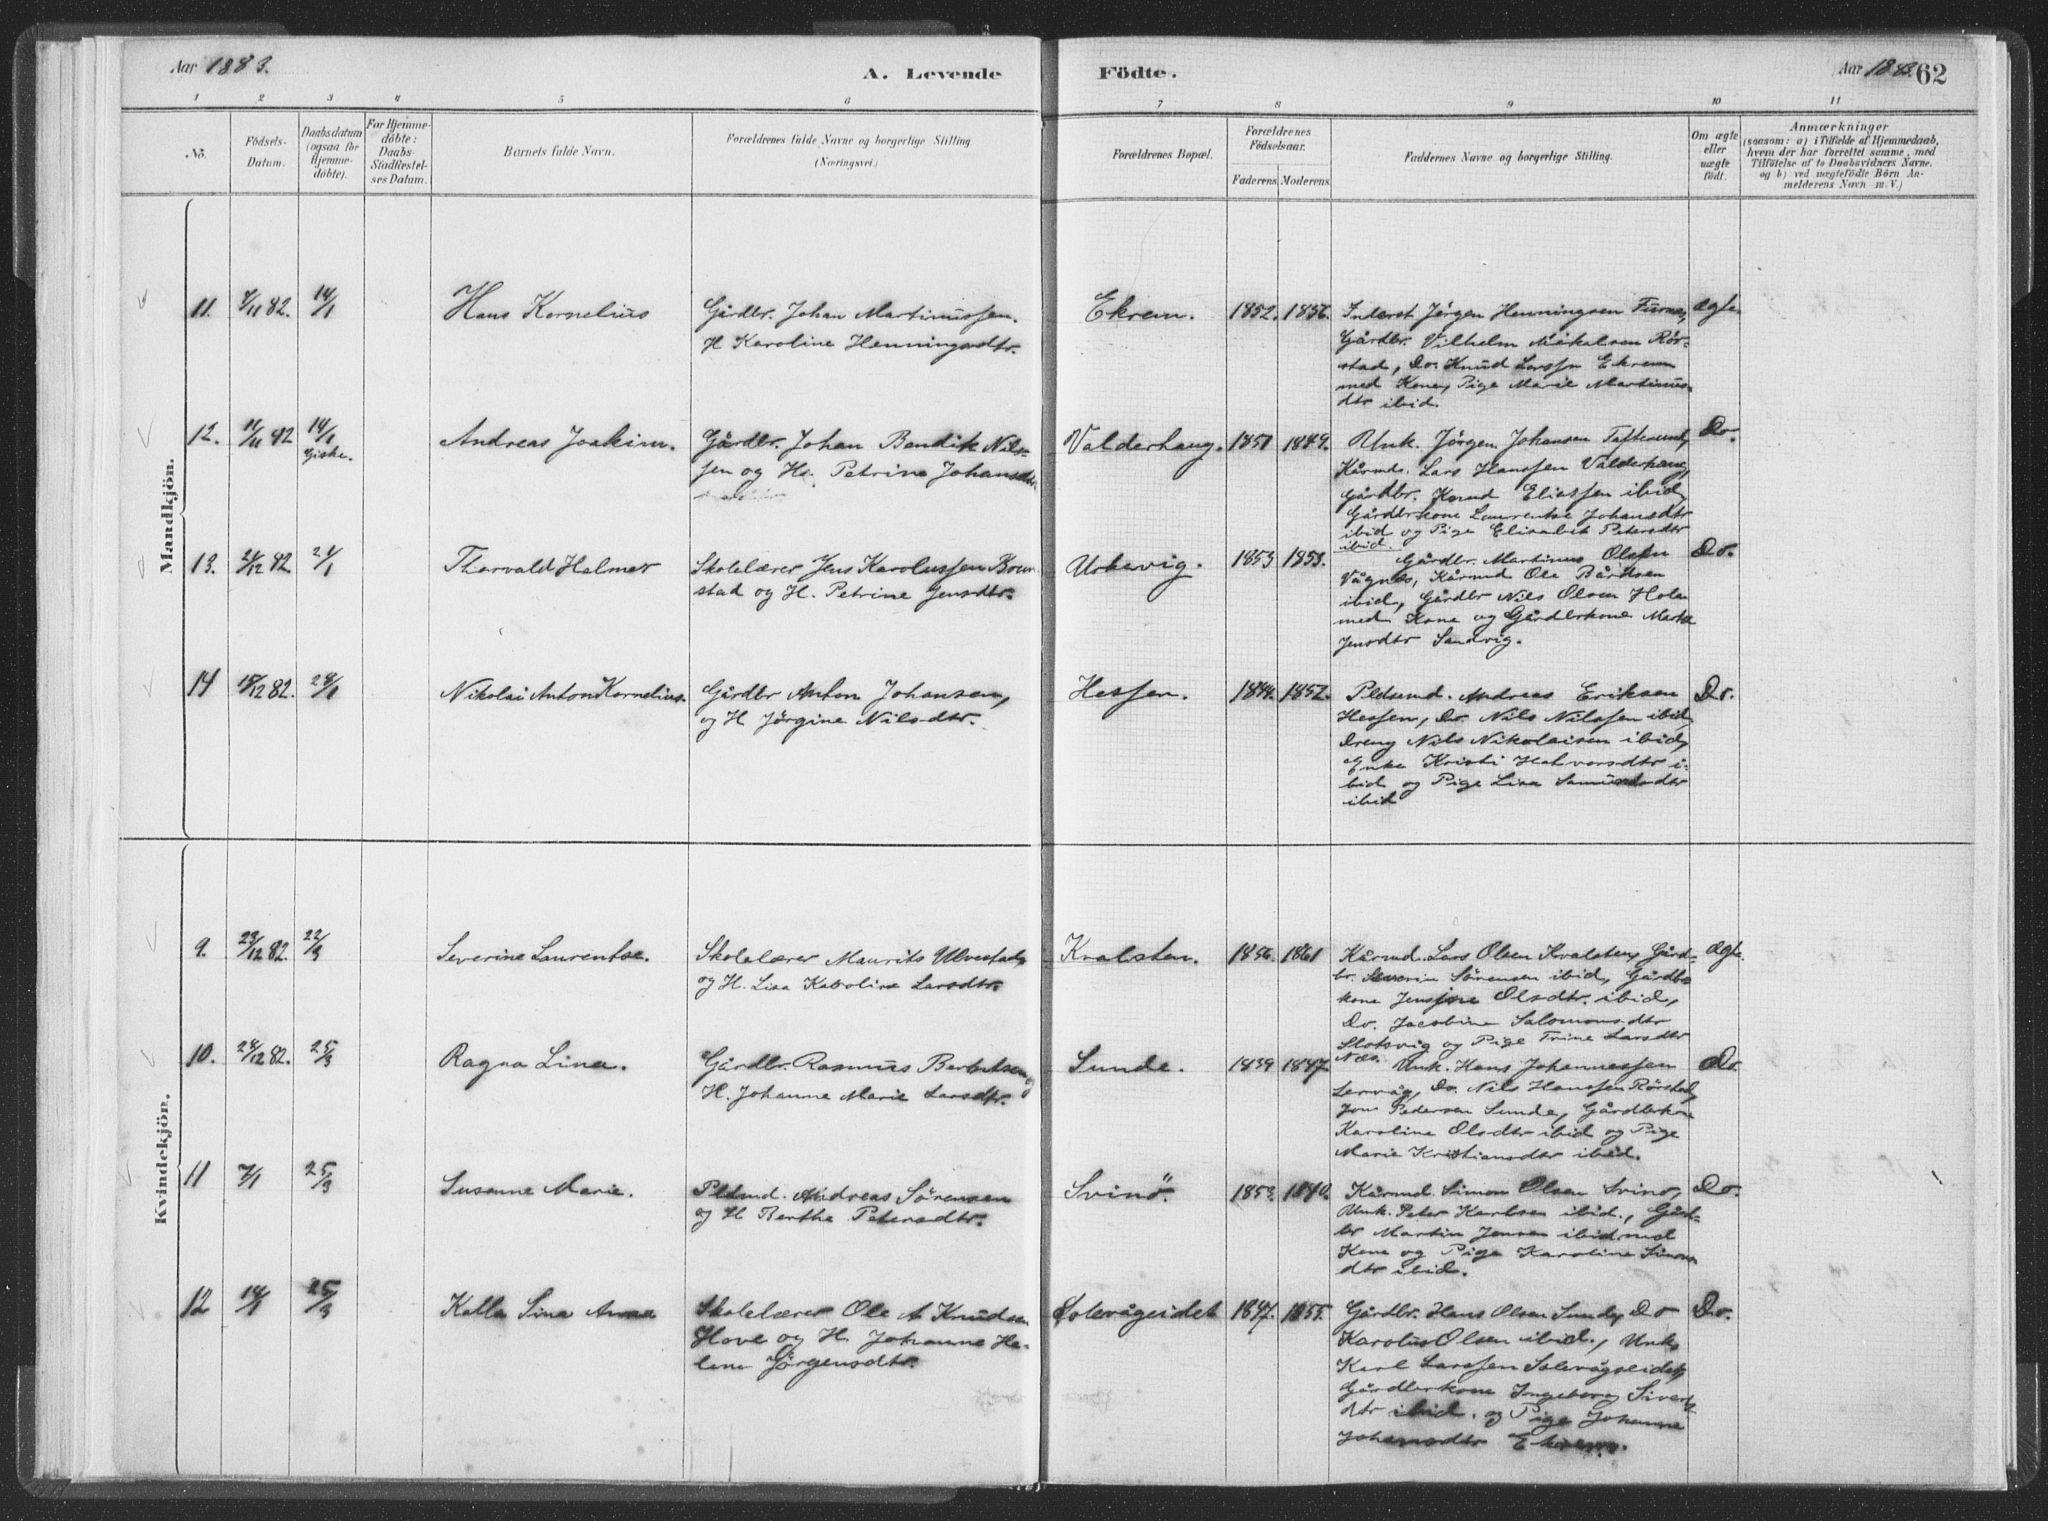 Aar 1883.
A. Levende
Födte.
Aar 1883.
62
1
2
3
4
5
6
7
8
9
10
11
No.
Födsels-
Datum.
Daabsdatum
(ogsaa for
Hjemme-
døbte).
For Hjemme-
döbte:
Daabs-
Stadfæstel-
ses Datum.
Barnets fulde Navn.
Forældrenes fulde Navne og borgerlige Stilling
(Næringsvei.)
Forældrenes Bopæl.
Forældrenes
Födselsaar.
Faderens.
Moderens.
Faddernes Navne og borgerlige Stilling.
Om ægte
eller
uægte
födt.
Anmærkninger
(saasom: a) i Tilfælde af Hjemmedaab,
hvem der har forrettet samme, med
Tilföielse af to Daabsvidners Navne.
og b) ved uægtefödte Börn An-
melderens Navn m. V.)
Mandkjön.
11.
7/11 82.
14/1
Hans Kornelius
Gårdbr. Johan Martinussen.
H Karoline Henningsdtr.
Ekrem.
1852.
1856.
Inderst Jörgen Henningsen Furnes,
Gårdbr. Vilhelm Mikalsen Rör-
stad, Do. Knud Larssen Ekrem
med Kone, Pige Marie Martinus-
dtr ibid.
Ægte.
12.
11/11 82
14/1
Giske.
Andreas Joakim.
Gårdbr. Johan Bendik Nils-
sen og H. Petrine Johansdtr.
Valderhaug.
1851
1849.
Unk. Jörgen Johansen Taftesund,
Kårmd. Lars Hanssen Valderhaug,
Gårdbr. Knud Eliassen ibid,
Gårdbrkone Laurentse Johansdtr
ibid og Pige Elisabet Petersdtr
ibid.
Do.
13.
21/12 82
21/1
Thorvald Helmer
Skolelærer Jens Karolussen Brun-
stad og H. Petrine Jensdtr.
Urkevig.
1853
1853.
Gårdbr. Martinus Olsen
Vågnes, Kårmd Ole Bårdsen
ibid, Gårdbr Nils Olsen Hole
med Kone og Gårdbrkone Marte
Jensdtr Sandvig.
Do.
14
18/12 82.
28/1
Nikolai Anton Kornelius.
Gårdbr Anton Johansen,
og H Jörgine Nilsdtr.
Hessen.
1844.
1852.
Pldsmd. Andreas Eriksen
Hessen, Do. Nils Nilssen ibid,
Dreng Nils Nikolaisen ibid,
Enke Kristi Halvorsdtr i-
bid og Pige Lisa Samuelsdtr
ibid
Do.
Kvindekjön.
9.
23/12 82.
22/3
Severine Laurentse.
Skolelærer Maurits Ulvestad,
og H. Lisa Karoline Larsdtr.
Kvalsten.
1856.
1861
Kårmd. Lars Olsen Kvalsten, Gård-
br. Severin Sörensen ibid, Gårdbr-
kone Jensine Olsdtr. ibid,
Do. Jacobine Salomonsdtr
Slotsvig og Pige Trine Larsdtr
Næs.
Ægte.
10.
28/12 82.
25/3
Ragna Lina.
Gårdbr. Rasmus Berntsen og
H. Johanne Marie Larsdtr.
Sunde.
1839
1847.
Unk. Hans Johannessen
Lervåg, Do. Nils Hanssen Rörstad,
Jon Pedersen Sunde, Gårdbrkone
Karoline Olsdtr ibid og Pige
Marie Kristiansdtr ibid.
Do.
11
7/1
25/3
Susanne Marie.
Pldsmd. Andreas Sörensen
og H Berthe Petersdtr.
Svinö.
1853.
1840.
Kårmd. Simon Olsen Svinö,
Unk. Peter Karlsen ibid., Gård-
br Martin Jensen ibid med
Kone og Pige Karoline Simons-
dtr ibid.
Do.
12
14/1
25/3
Kalla Sina Anna
Skolelærer Ole A. Knudsen
Hove og H. Johanne He-
lene Jörgensdtr.
Solevågeidet
1847.
1855.
Gårdbr. Hans Olsen Sunde, Do
Karolus Olsen ibid., Unk.
Karl Larssen Solevågseidet,
Gårdbrkone Ingeborg Siverts-
dtr ibid. og Pige Johanne
Johansdtr Ekrem.
Do.